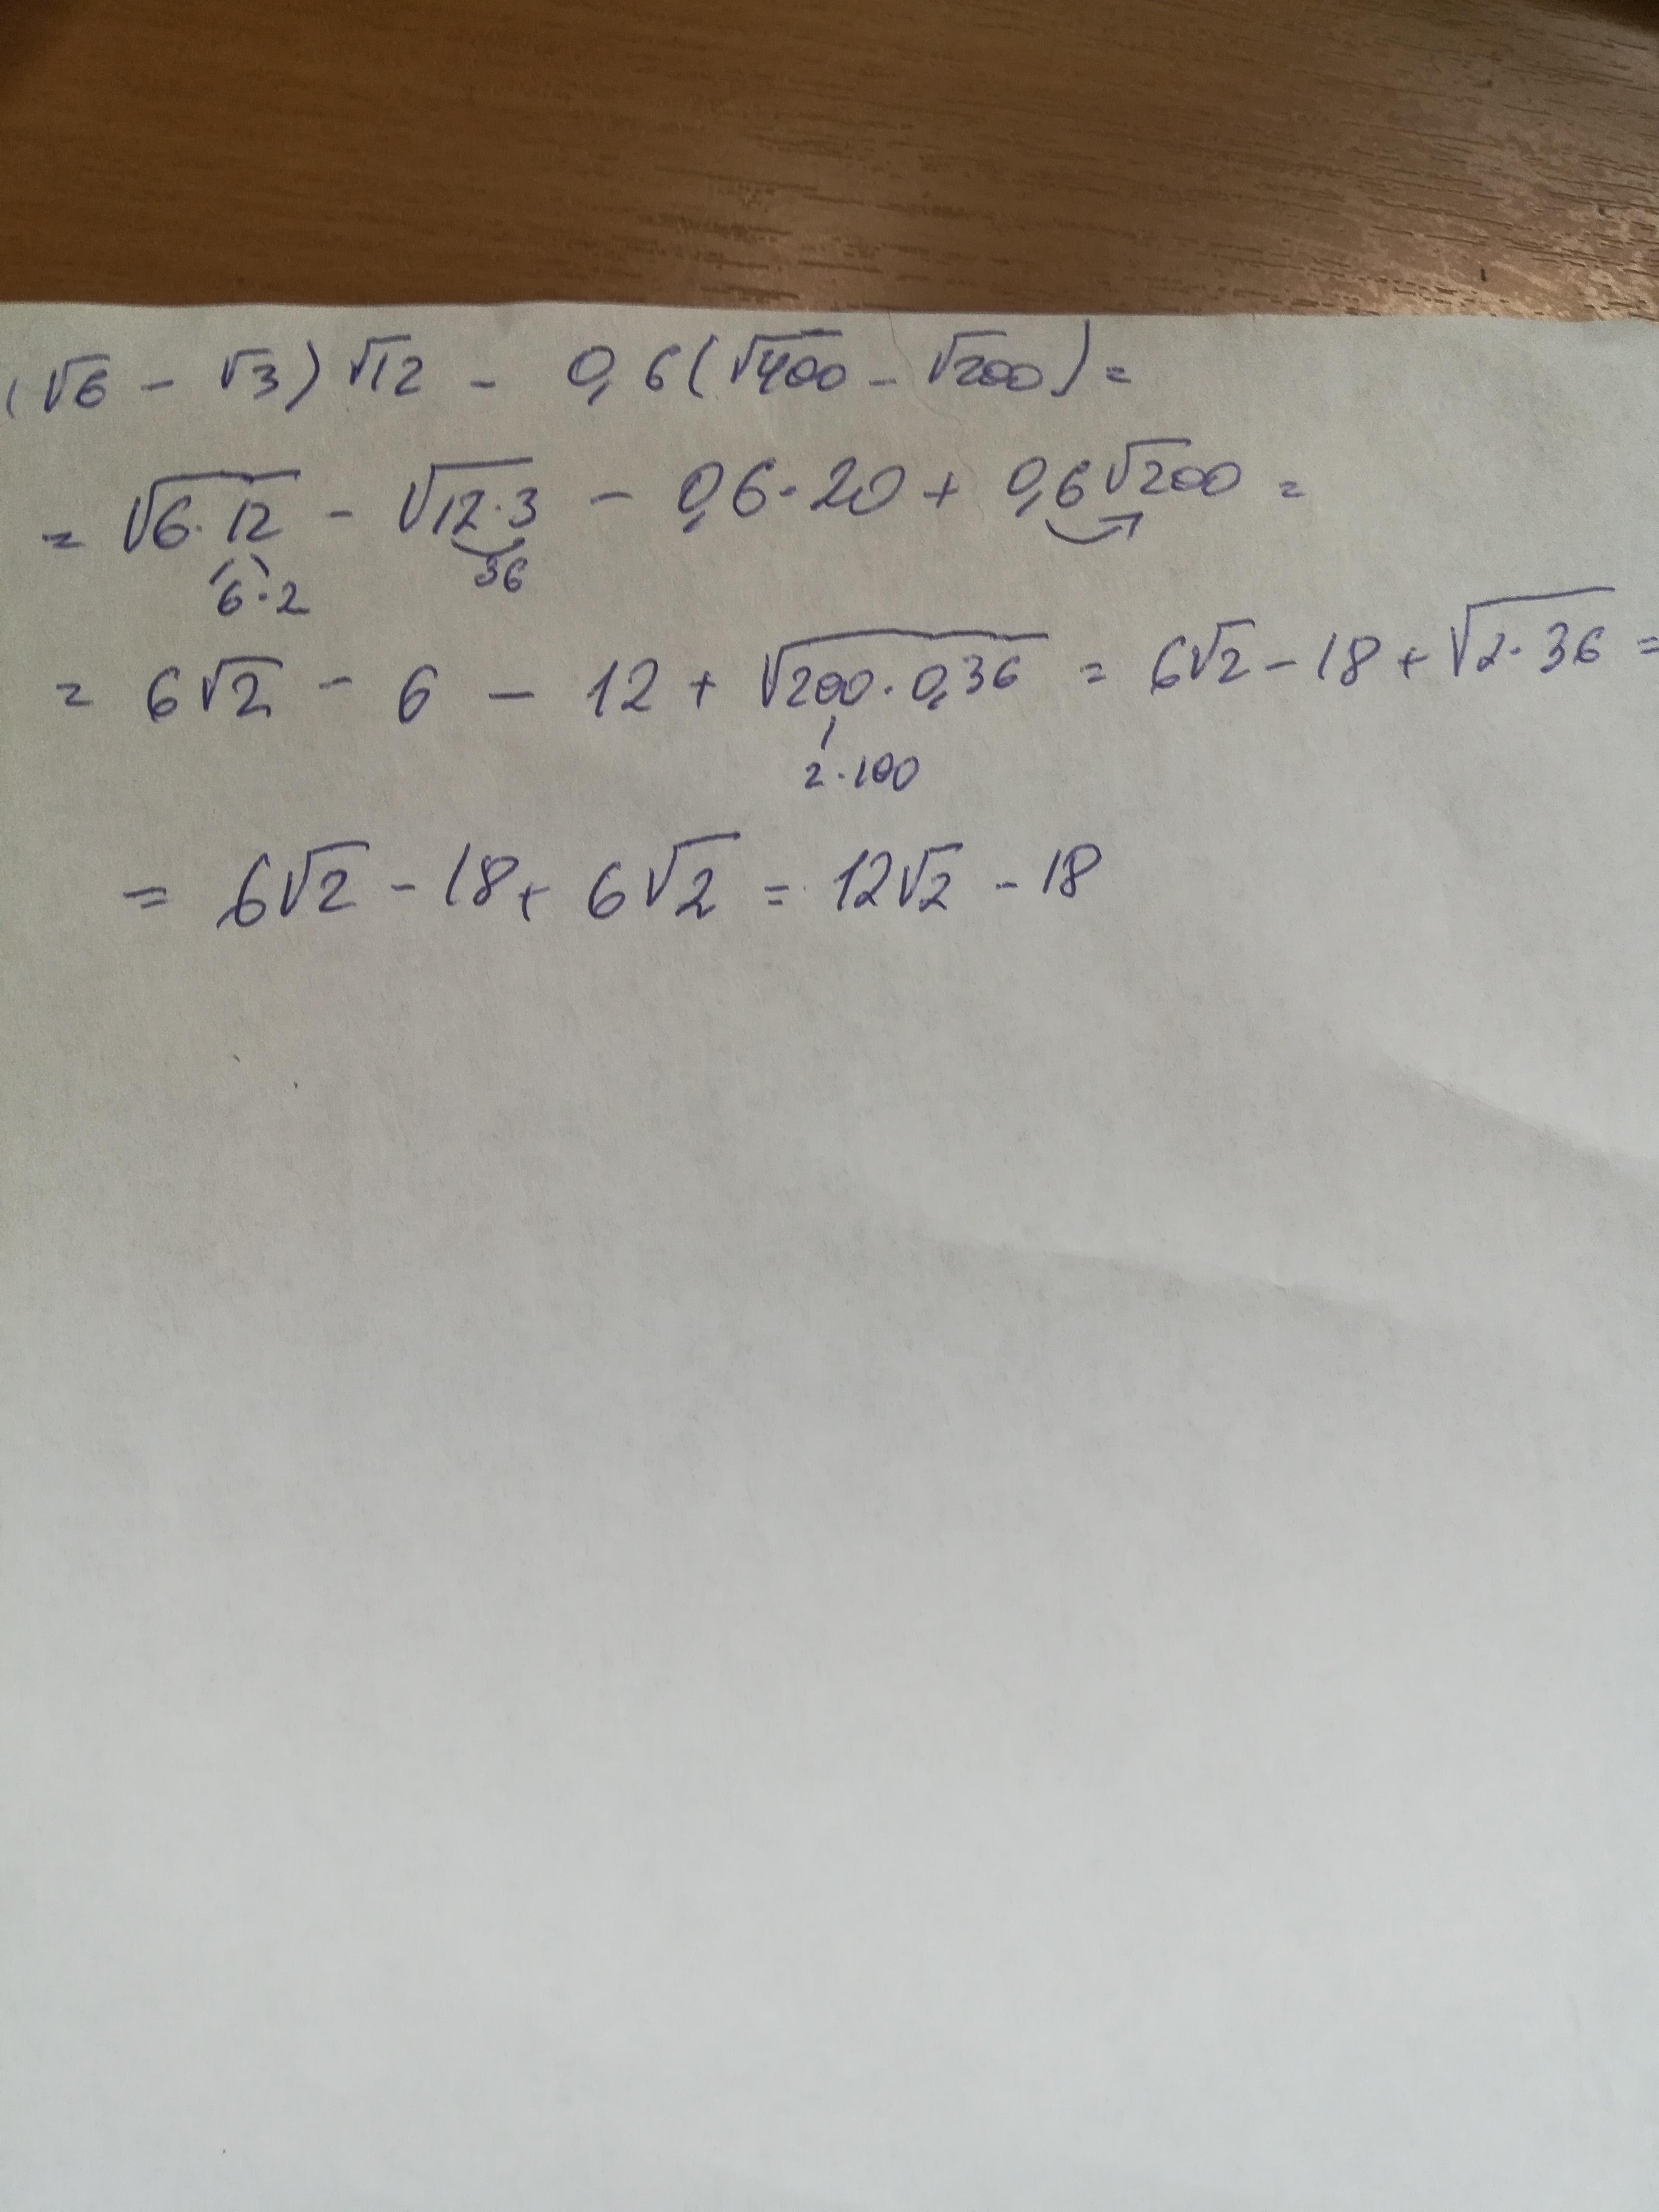 (√6 - √3) √12 - 0,6(√400 - √200) =
= √6·12 - √12·3 - 0,6·20 + 0,6√200 =
6·2 36
= 6√2 - 6 - 12 + √200·0,36 = 6√2 - 18 + √2·36 =
2·100
= 6√2 - 18 + 6√2 = 12√2 - 18